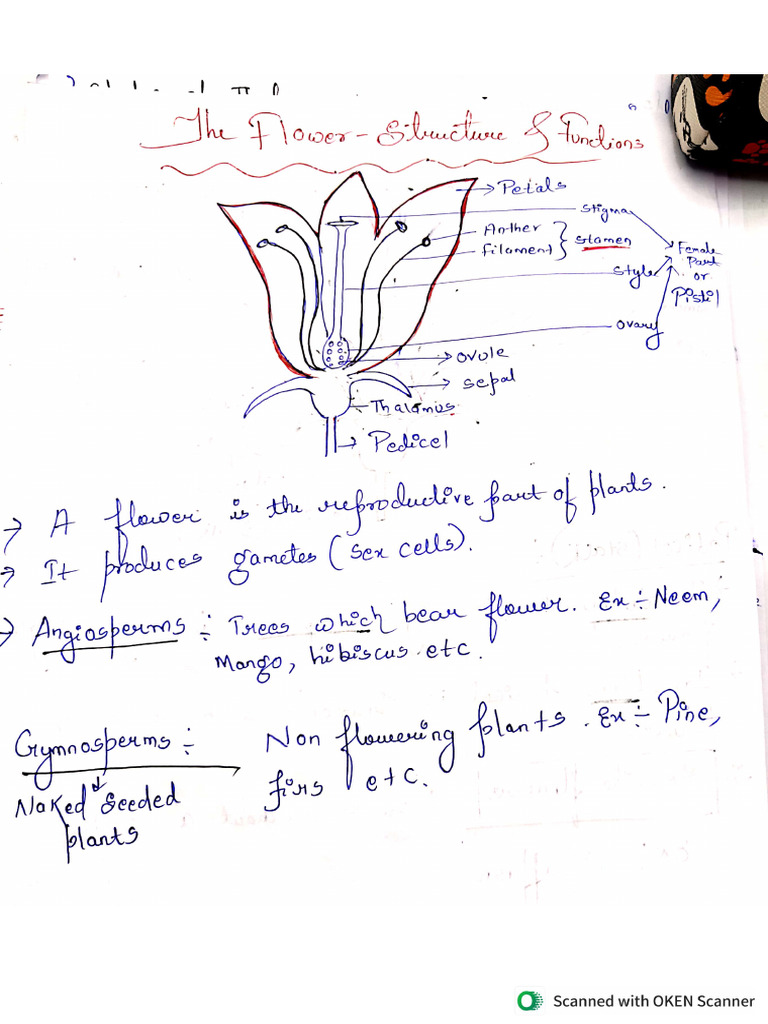 The Flower - Structure & Functions
Petals
Stigma
Anther
Filament
Stamen
Female
Part
or
Pistil
Style
Ovary
Ovule
Sepal
Thalamus
Pedicel
→ A flower is the reproductive part of plants.
→ It produces gametes (Sex cells).
→ Angiosperms ÷ Trees which bear flower. Ex ÷ Neem,
Mango, hibiscus etc.
Gymnosperms ÷ Non flowering plants. Ex ÷ Pine,
firs etc.
Naked Seeded
plants
Scanned with OKEN Scanner